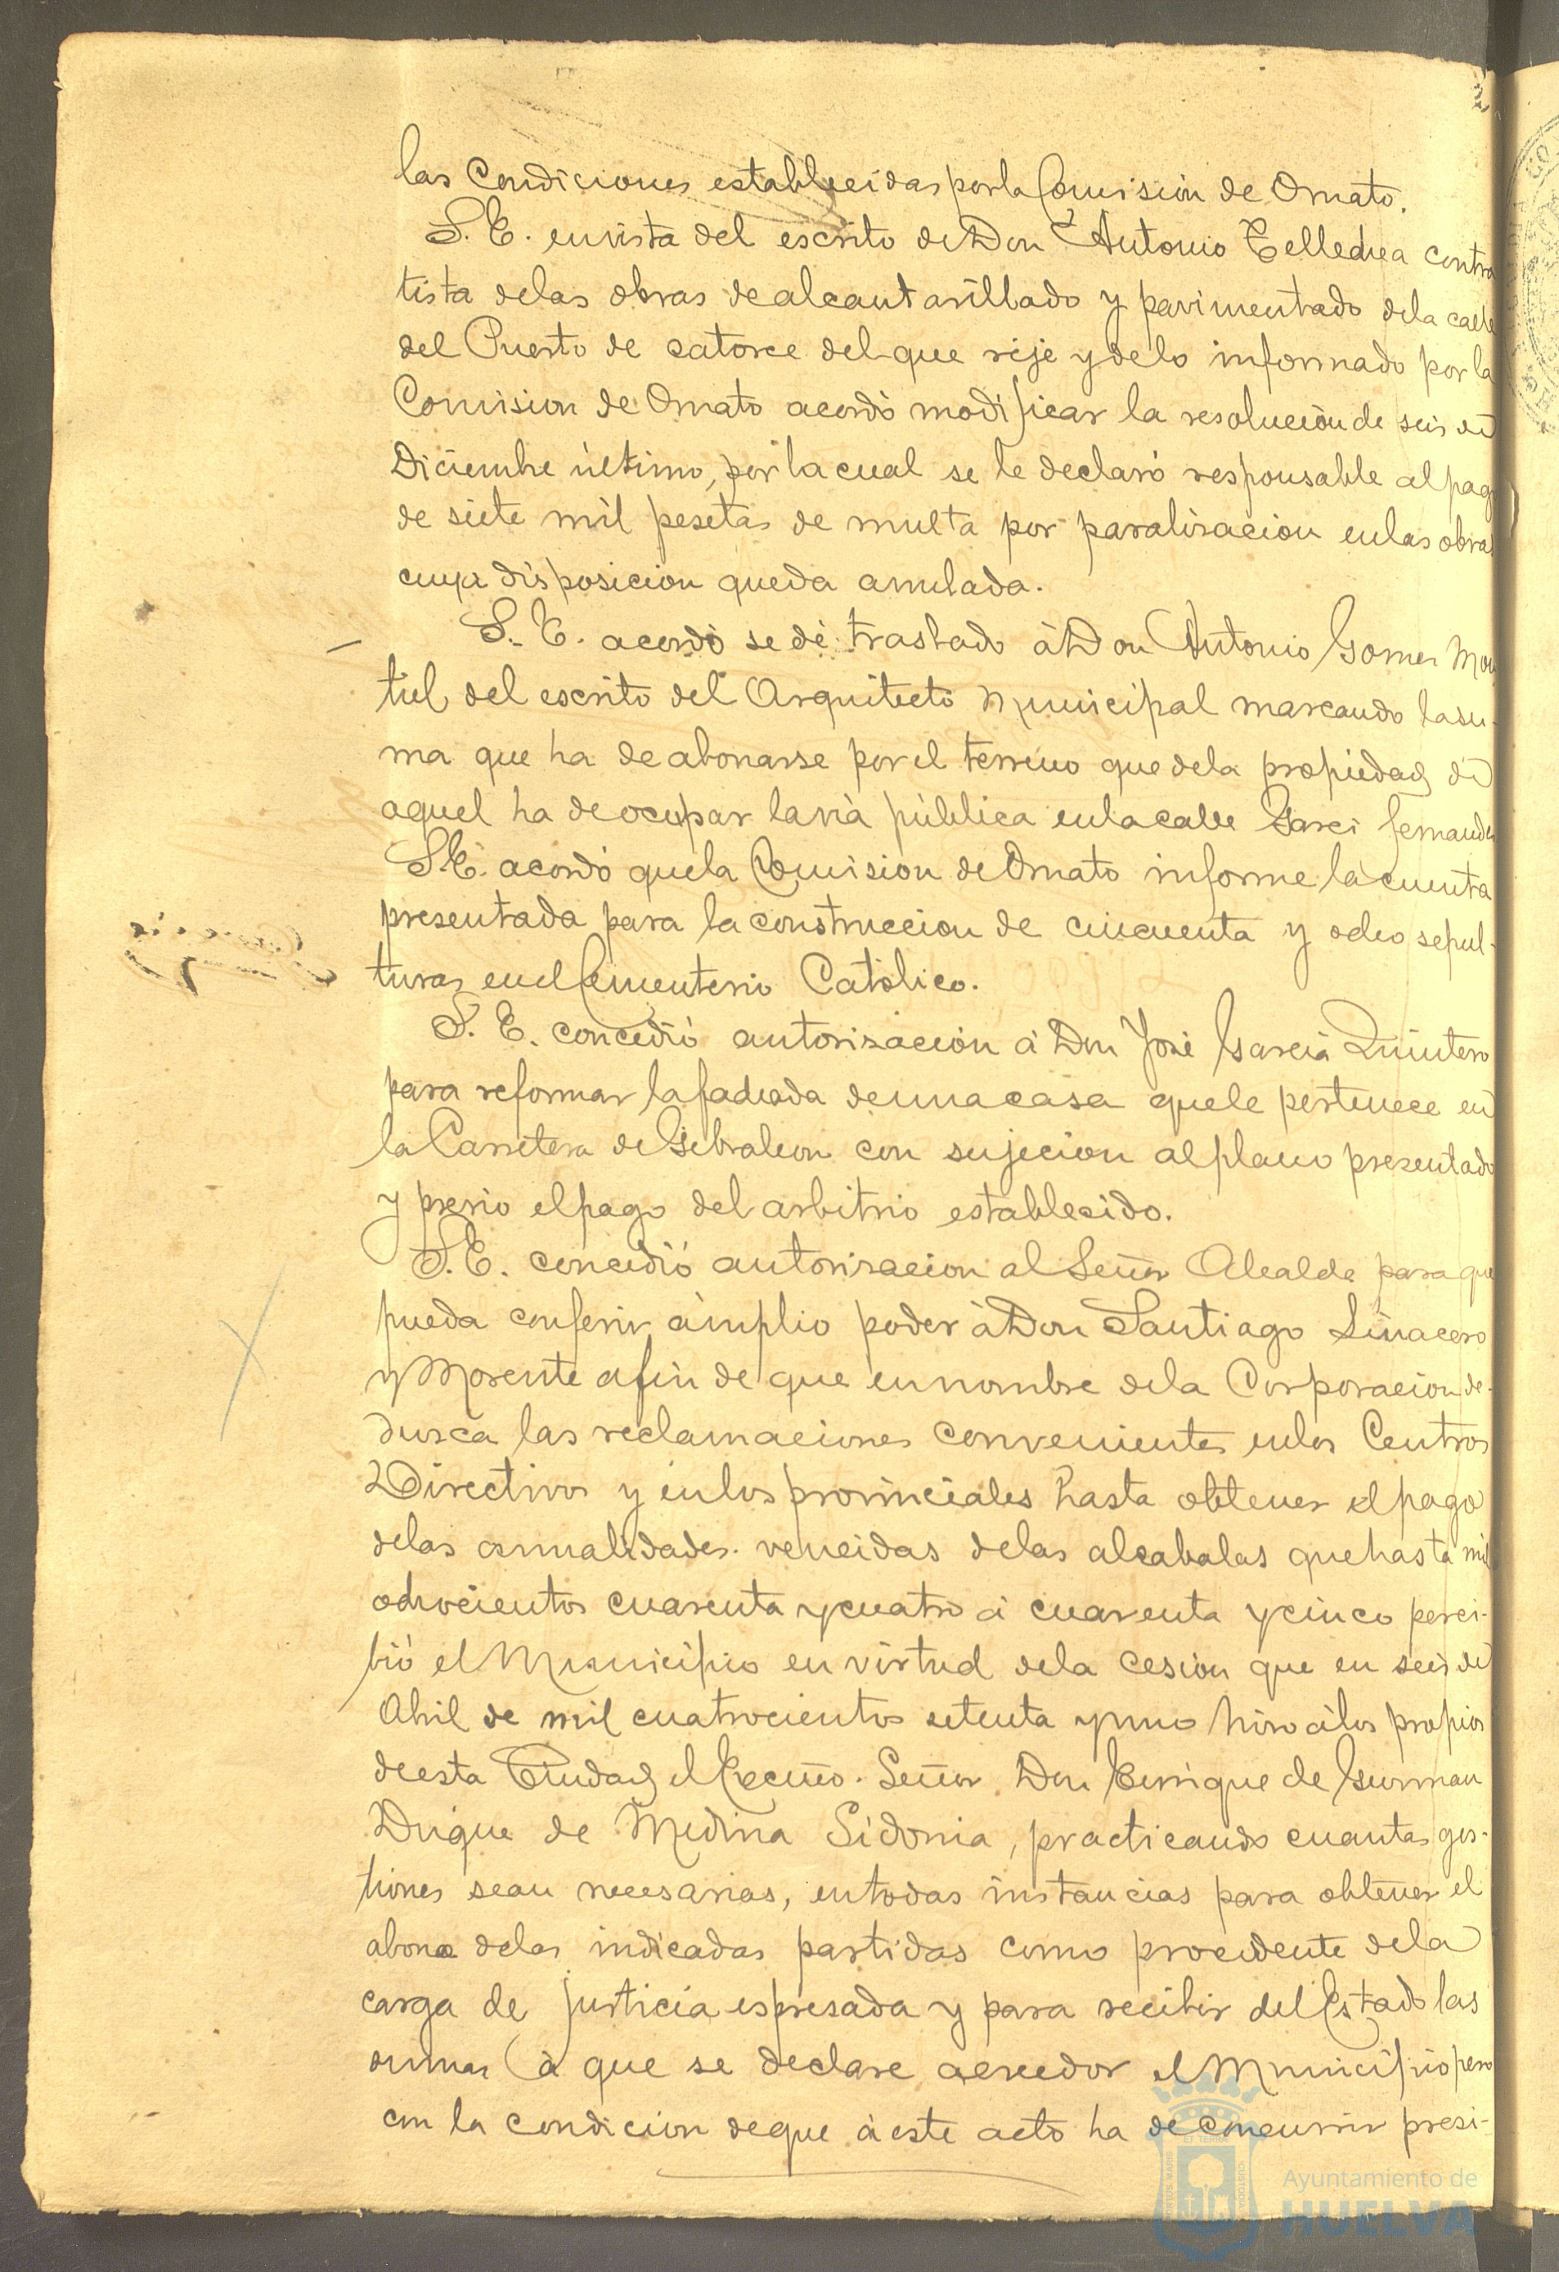 las Condiciones establecidas por la Comision de Ornato.
S. E. en vista del escrito de Don Antonio Tellechea contra
tista de las obras de alcantarillado y pavimentado de la calle
del Puerto de catorce del que rije y de lo informado por la
Comision de Ornato acordó modificar la resolución de seis de
Diciembre último, por la cual se le declaró responsable al pago
de siete mil pesetas de multa por paralisacion en las obras
cuya disposicion queda anulada.
S. E. acordó se dé traslado á Don Antonio Gomes Mon
tiel del escrito del Arquitecto Municipal marcando la su-
ma que ha de abonarse por el terreno que de la propiedad de
aquel ha de ocupar la via pública en la calle Garci Fernandes
S. E. acordó que la Comision de Ornato informe la cuenta
presentada para la construccion de cincuenta y ocho sepul-
turas en el Cementerio Católico.
S. E. concedió autorisación á Don José Garcia Quintero
para reformar la fachada de una casa que le pertenece en
la Carretera de Gibraleon con sujecion al plano presentado
y previo el pago del arbitrio establecido.
S. E. concedió autorisacion al Señor Alcalde para que
pueda conferir ámplio poder á Don Santiago Linacero
y Morente a fin de que en nombre de la Corporacion de-
dusca las reclamaciones convenientes en los Centros
Directivos y en los provinciales hasta obtener el pago
de las anualidades vencidas de las alcabalas que hasta mil
ochocientos cuarenta y cuatro á cuarenta y cinco perci-
bió el Municipio en virtud de la cesion que en seis de
Abril de mil cuatrocientos setenta y uno hiso á los propios
de esta Ciudad el Excmo. Señor Don Enrique de Gusman
Duque de Medina Sidonia, practicando cuantas ges-
tiones sean necesarias, en todas instancias para obtener el
abono de las indicadas partidas como procedente de la
carga de justicia espresada y para recibir del Estado las
sumas á que se declare acreedor el Municipio pero
con la condicion de que á este acto ha de concurrir presi-
Ayuntamiento de
HUELVA